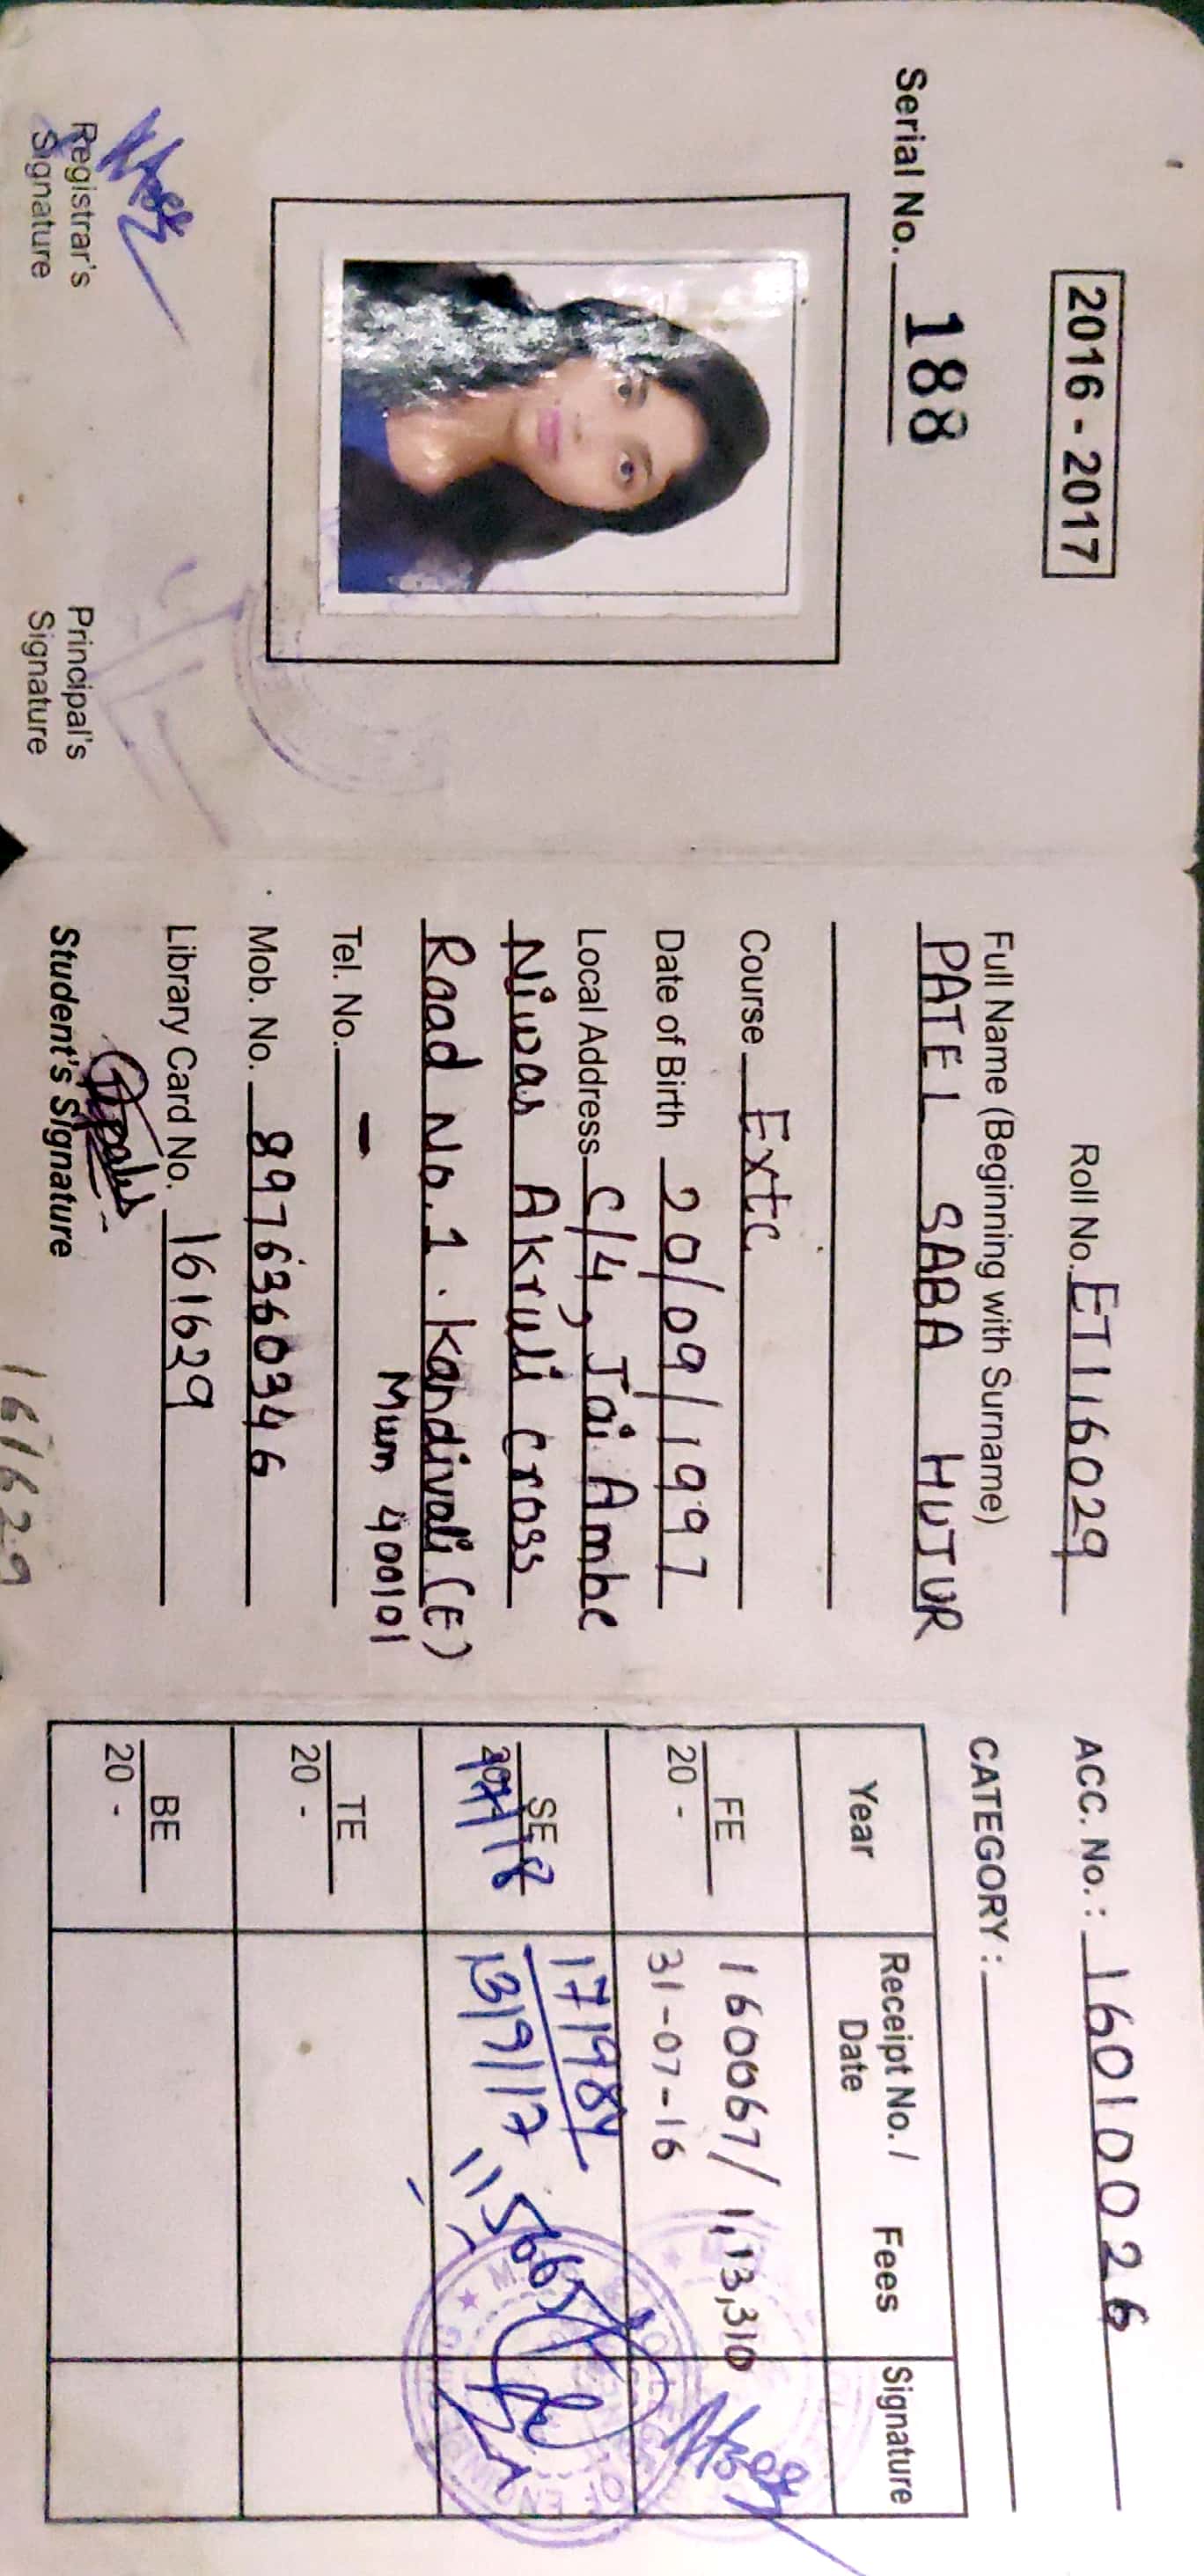 2016 - 2017
Serial No. 188
Registrar's
Signature
Principal's
Signature
Roll No. ET116029
Full Name (Beginning with Surname)
PATEL SABA HUTUR
Course Extc
Date of Birth 20/09/1997
Local Address C/4, Jai Ambe
Niwas Akruli Cross
Road No. 1. Kandivali (E)
Mum 400101
Tel. No. -
Mob. No. 8976360346
Library Card No. 161629
Student's Signature
161629
ACC. No. : 160100026
CATEGORY :
Year Receipt No. / Date Fees Signature
FE
20 -
160067/ 1,13,310
31-07-16
SE
17/18
13/9/17
TE
20 -
BE
20 -